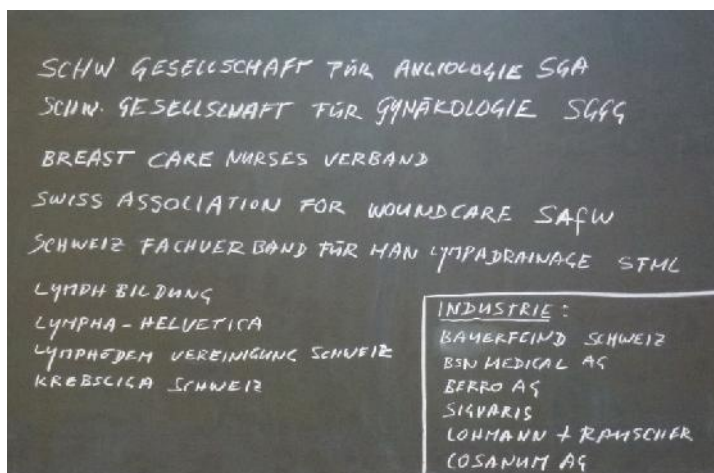 SCHW GESELLSCHAFT FÜR ANGIOLOGIE SGA
SCHW. GESELLSCHAFT FÜR GYNÄKOLOGIE SGGG
BREAST CARE NURSES VERBAND
SWISS ASSOCIATION FOR WOUNDCARE SAfW
SCHWEIZ FACHVERBAND FÜR MAN LYMPADRAINAGE SFML
LYMPH BILDUNG
LYMPHA-HELVETICA
LYMPHÖDEM VEREINIGUNG SCHWEIZ
KREBSLIGA SCHWEIZ
INDUSTRIE:
BAUERFEIND SCHWEIZ
BSN MEDICAL AG
BERRO AG
SIGVARIS
LOHMANN + RAUSCHER
COSANUM AG